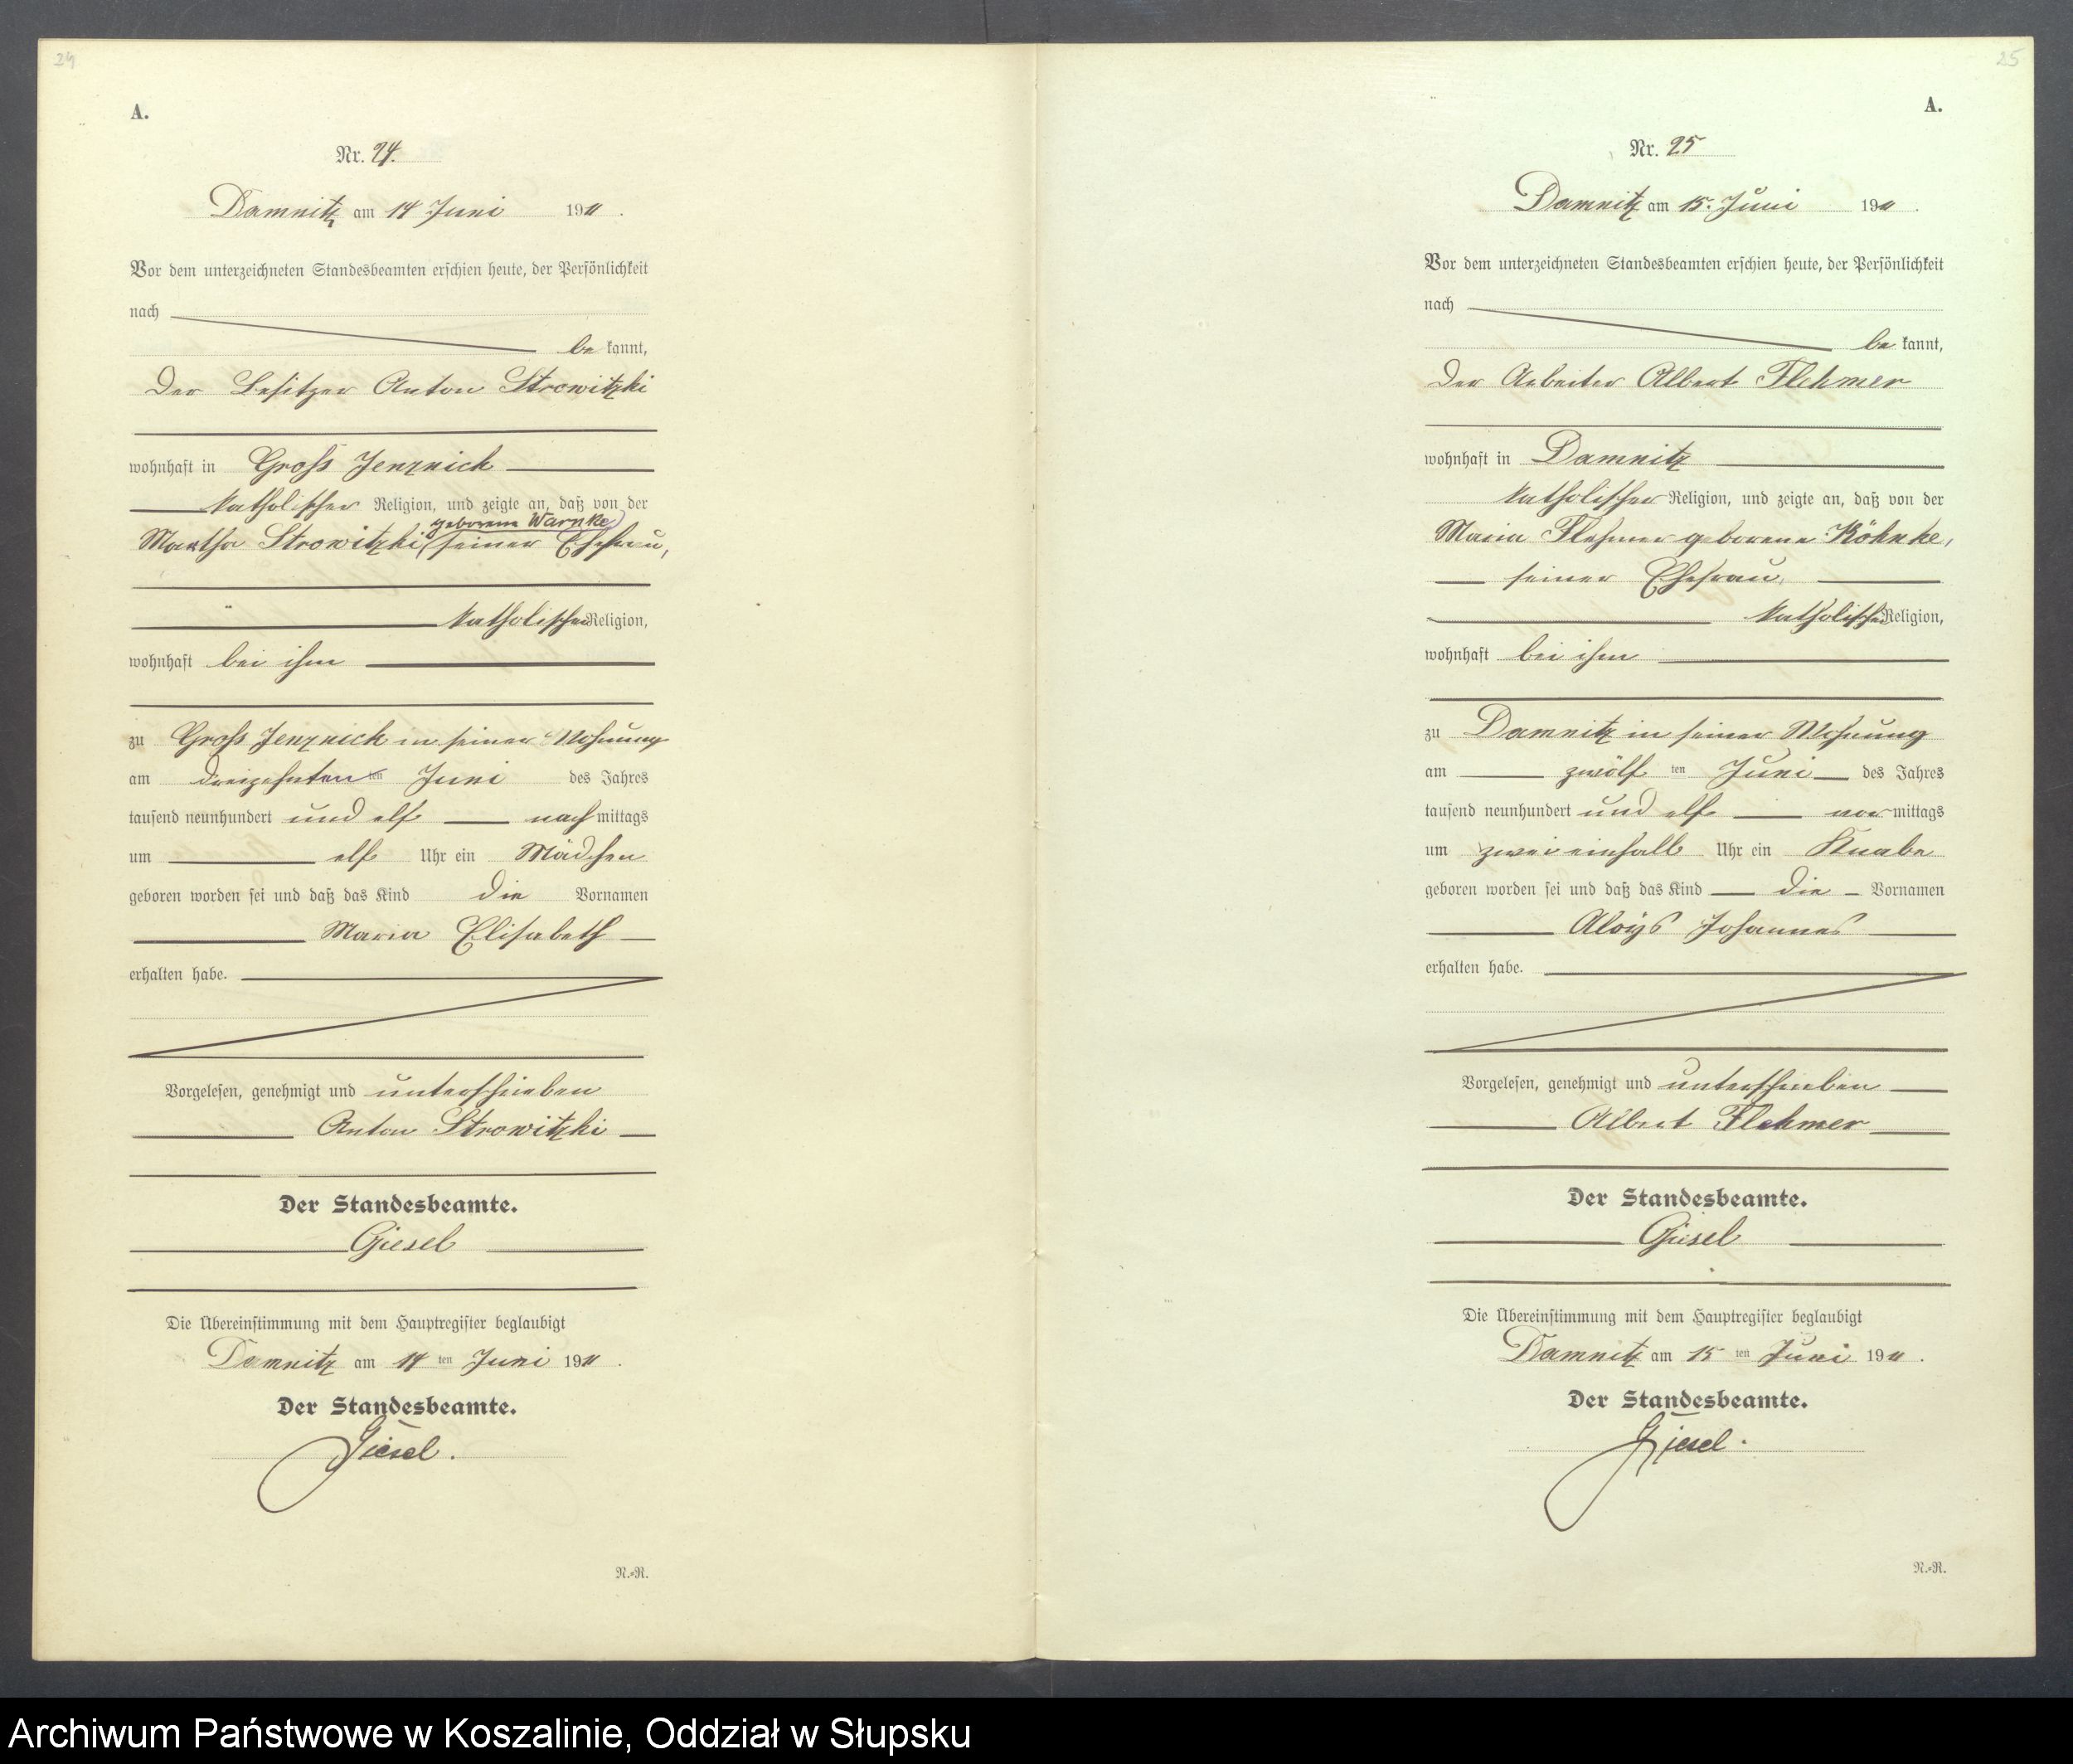 24
A.
Nr. 24.
Damnitz am 14 Juni 1911.
Vor dem unterzeichneten Standesbeamten erschien heute, der Persönlichkeit
nach
be kannt,
der Besitzer Anton Strowitzki
wohnhaft in Gross Jenznick
katholischer Religion, und zeigte an, daß von der
geborene Warnke
Martha Strowitzki seiner Ehefrau,
katholischer Religion,
wohnhaft bei ihm
zu Gross Jenznick in seiner Wohnung
am dreizehnten ten Juni des Jahres
tausend neunhundert und elf nach mittags
um elf Uhr ein Mädchen
geboren worden sei und daß das Kind die Vornamen
Maria Elisabeth
erhalten habe.
Vorgelesen, genehmigt und unterschrieben
Anton Strowitzki
Der Standesbeamte.
Giesel
Die Übereinstimmung mit dem Hauptregister beglaubigt
Damnitz am 14 ten Juni 1911.
Der Standesbeamte.
Giesel.
N.=R.
25
A.
Nr. 25
Damnitz am 15. Juni 1911.
Vor dem unterzeichneten Standesbeamten erschien heute, der Persönlichkeit
nach
be kannt,
der Arbeiter Albert Flehmer
wohnhaft in Damnitz
katholischer Religion, und zeigte an, daß von der
Maria Flehmer geborene Köhnke,
seiner Ehefrau,
katholischer Religion,
wohnhaft bei ihm
zu Damnitz in seiner Wohnung
am zwölf ten Juni des Jahres
tausend neunhundert und elf vor mittags
um zwei einhalb Uhr ein Knabe
geboren worden sei und daß das Kind die Vornamen
Aloys Johannes
erhalten habe.
Vorgelesen, genehmigt und unterschrieben
Albert Flehmer
Der Standesbeamte.
Giesel
Die Übereinstimmung mit dem Hauptregister beglaubigt
Damnitz am 15 ten Juni 1911.
Der Standesbeamte.
Giesel.
N.=R.
Archiwum Państwowe w Koszalinie, Oddział w Słupsku